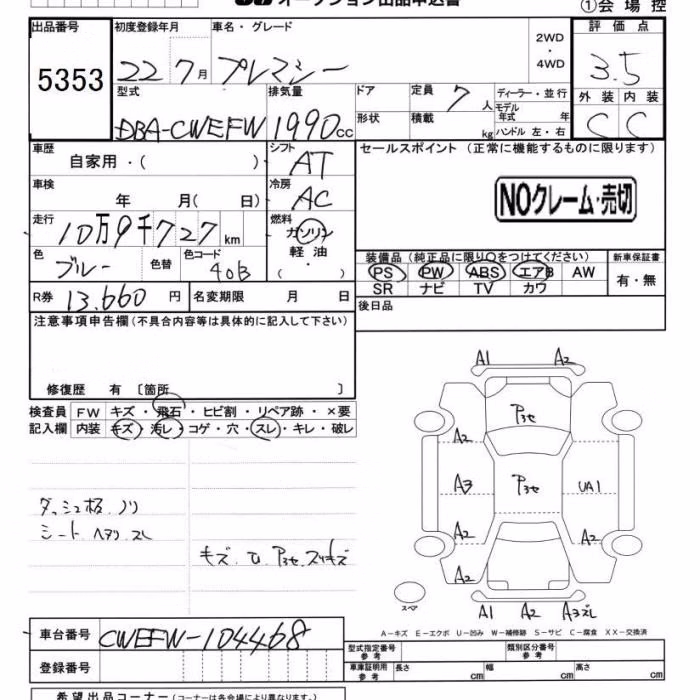 オークション出品申込書
①会場控
出品番号 5353
初度登録年月 22 7月
車名・グレード プレマシー
2WD・4WD
評価点 3.5
外装 C 内装 C
型式 DBA-CWEFW
排気量 1990cc
ドア
形状
定員 7人
積載 kg
ディーラー・並行
モデル年式 年
ハンドル 左・右
車歴 自家用・( )
シフト AT
セールスポイント (正常に機能するものに限ります)
NOクレーム・売切
車検 年 月( 日)
冷房 AC
走行 10万9千727km
燃料 ガソリン
軽油
( ・ )
色 ブルー 色替 色コード 40B
装備品 (純正品に限り○をつけてください)
PS PW ABS エアB AW
SR ナビ TV カワ
新車保証書
有・無
R券 13.660円
名変期限 月 日
後日品
注意事項申告欄(不具合内容等は具体的に記入して下さい)
修復歴 有 〔箇所 〕
検査員記入欄
FW キズ・飛石・ヒビ割・リペア跡・×要
内装 キズ・汚レ・コゲ・穴・スレ・キレ・破レ
ダッシュ板ノリ
シートヘタリスレ
キズ.U.Pヨセ.スリキズ
A1 A2
Pヨセ
A2
A3 Pヨセ UA1
A2 A2
A2
スペア
A1 A2 A3ズレ
A-キズ E-エクボ U-凹み W-補修跡 S-サビ C-腐食 XX-交換済
車台番号 CWEFW-104468
登録番号
型式指定番号 参考
類別区分番号 参考
車庫証明用 参考 長さ cm 幅 cm 高さ cm
希望出品コーナー(コーナーは各会場により異なります。)